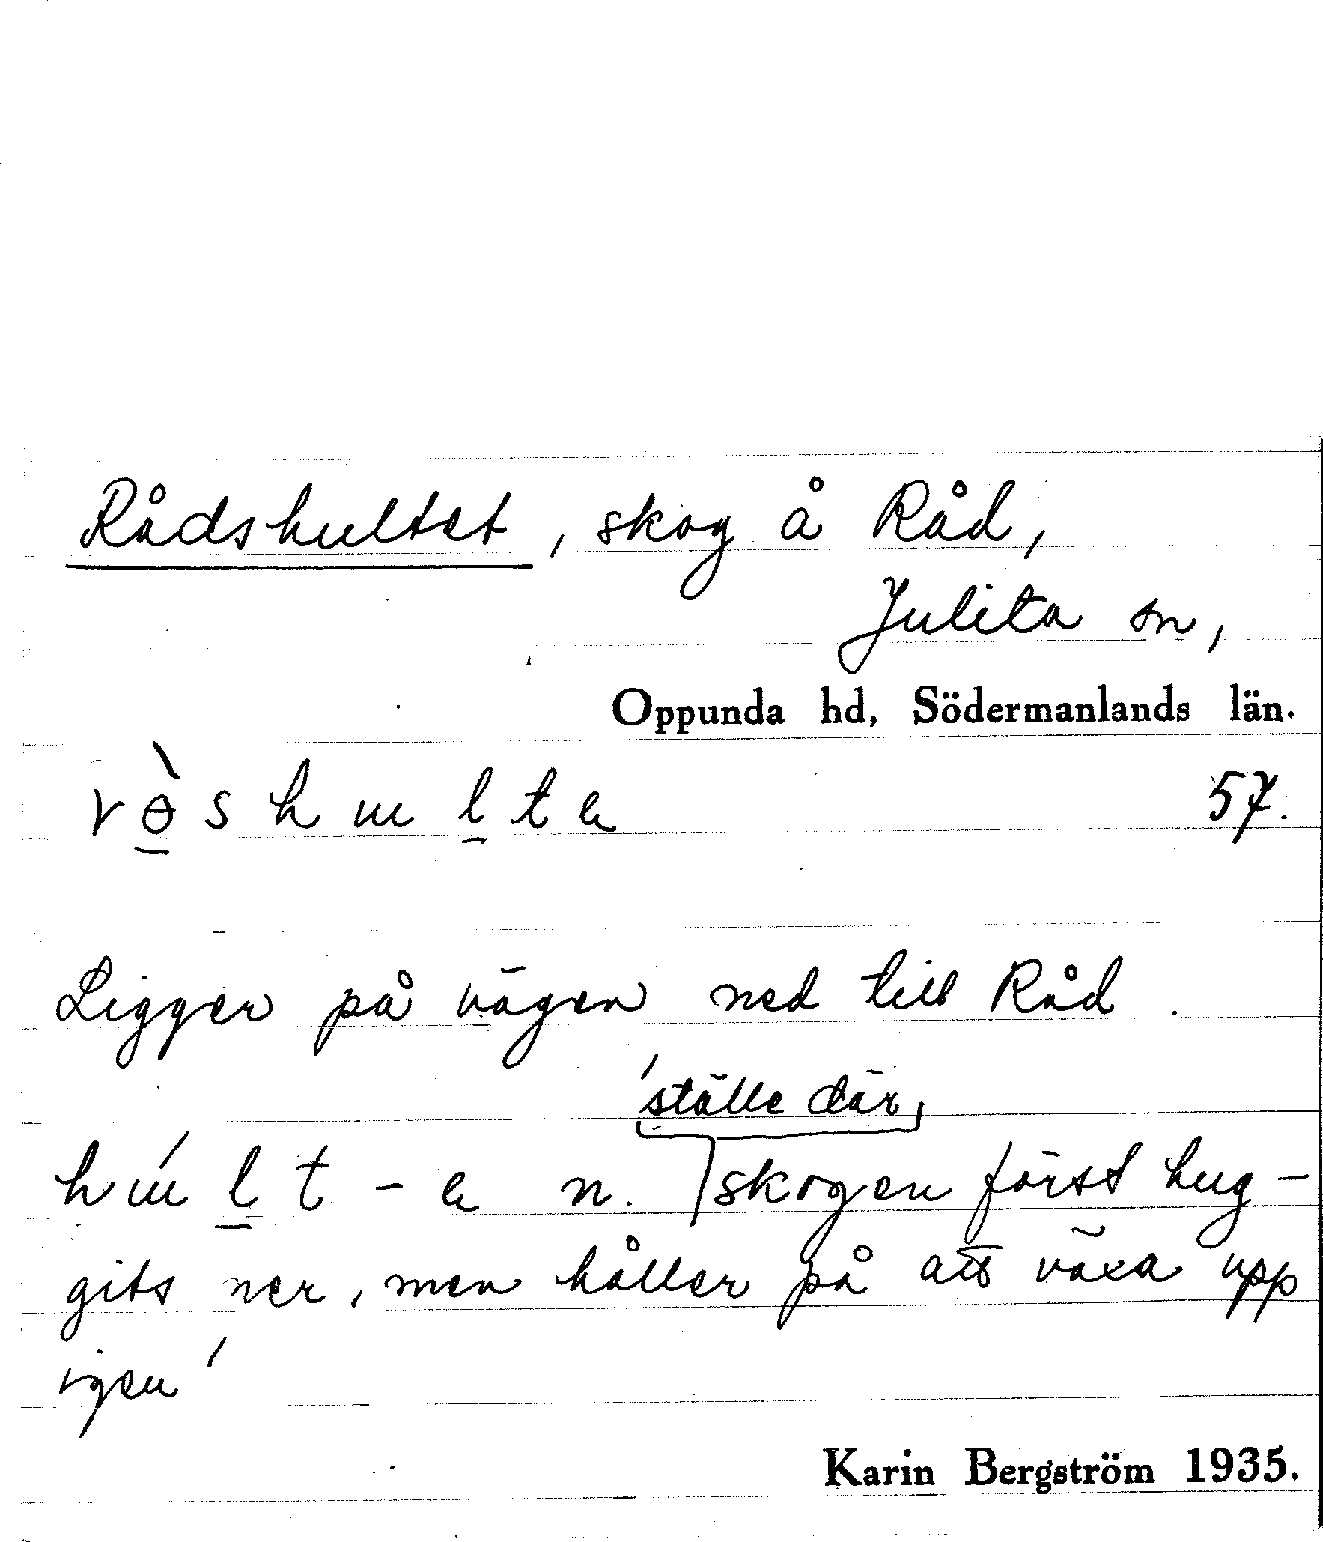 Rådshultet, skog å Råd,
Julita sn,
Oppunda hd, Södermanlands län.
rɵ̲̀shɯl̲te 57.
Ligger på vägen ned till Råd.
'ställe där,
hɯ́l̲t-e n. skogen först hug-
gits ner, men håller på att växa upp
igen'
Karin Bergström 1935.